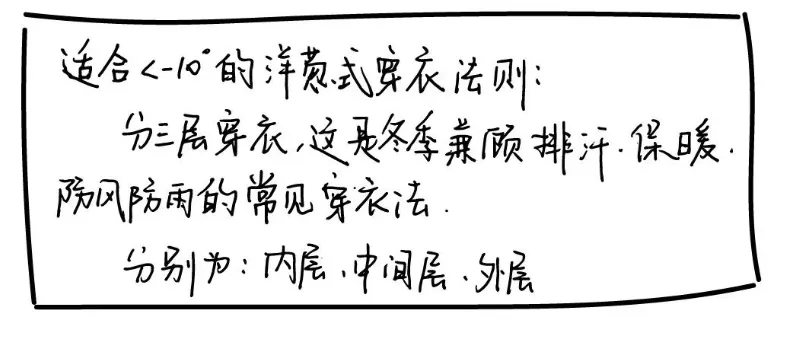 适合<-10°的洋葱式穿衣法则:
分三层穿衣,这是冬季兼顾排汗.保暖.
防风防雨的常见穿衣法.
分别为:内层、中间层、外层